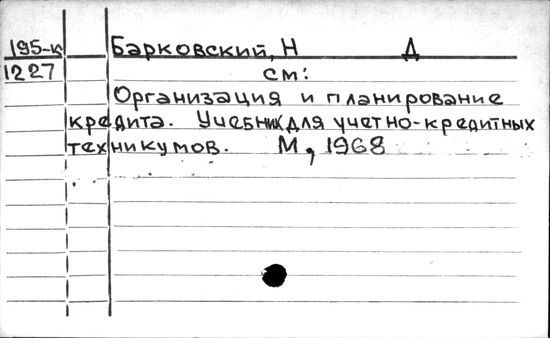 195-к Барковский, Н Д
1227 см:
Организация и планирование
кредита. Учебник для учетно-кредитных
техникумов. М, 1968